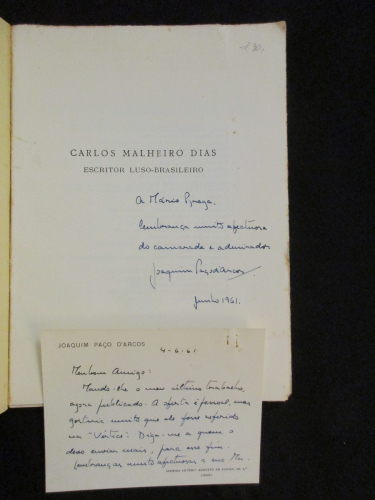 130,
CARLOS MALHEIRO DIAS
ESCRITOR LUSO-BRASILEIRO
A Mário Braga,
lembrança muito afectuosa
do camarada e admirador
Joaquim Paço d'Arcos
Junho 1961.
JOAQUIM PAÇO D'ARCOS
4-6-61
Meu bom Amigo:
Mando-lhe o meu último trabalho
agora publicado. A oferta é pessoal, mas
gostaria muito que ele fosse referido
na "Vértice". Diga-me a quem o
devo enviar mais, para esse fim.
Lembranças muito afectuosas do seu
LISBOA